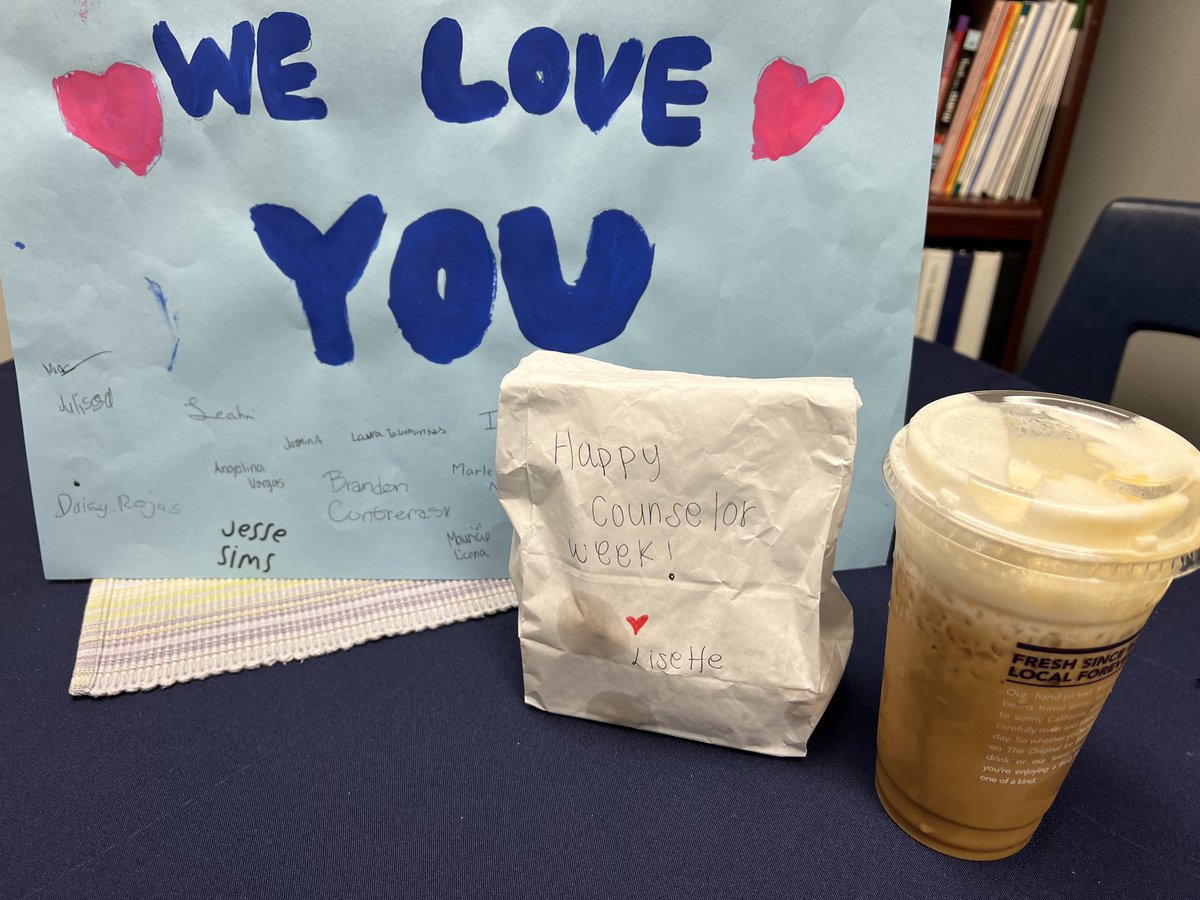 WE LOVE
YOU
Julissa
Leahi
Jasmin A
Laura Talamantes
Angelina
Vargas
Brandon
Contreras
Marle
Daisy. Rojas
Jesse
Sims
Mauricio
Licona
Happy
Counselor
week!
♥
Lisette
FRESH SINCE
LOCAL FOREV
Our hand-picked
beans travel across
to sunny California,
carefully roast, and
day. So whether you
on The Original Ice
drink or our latest
you're enjoying a
one of a kind.